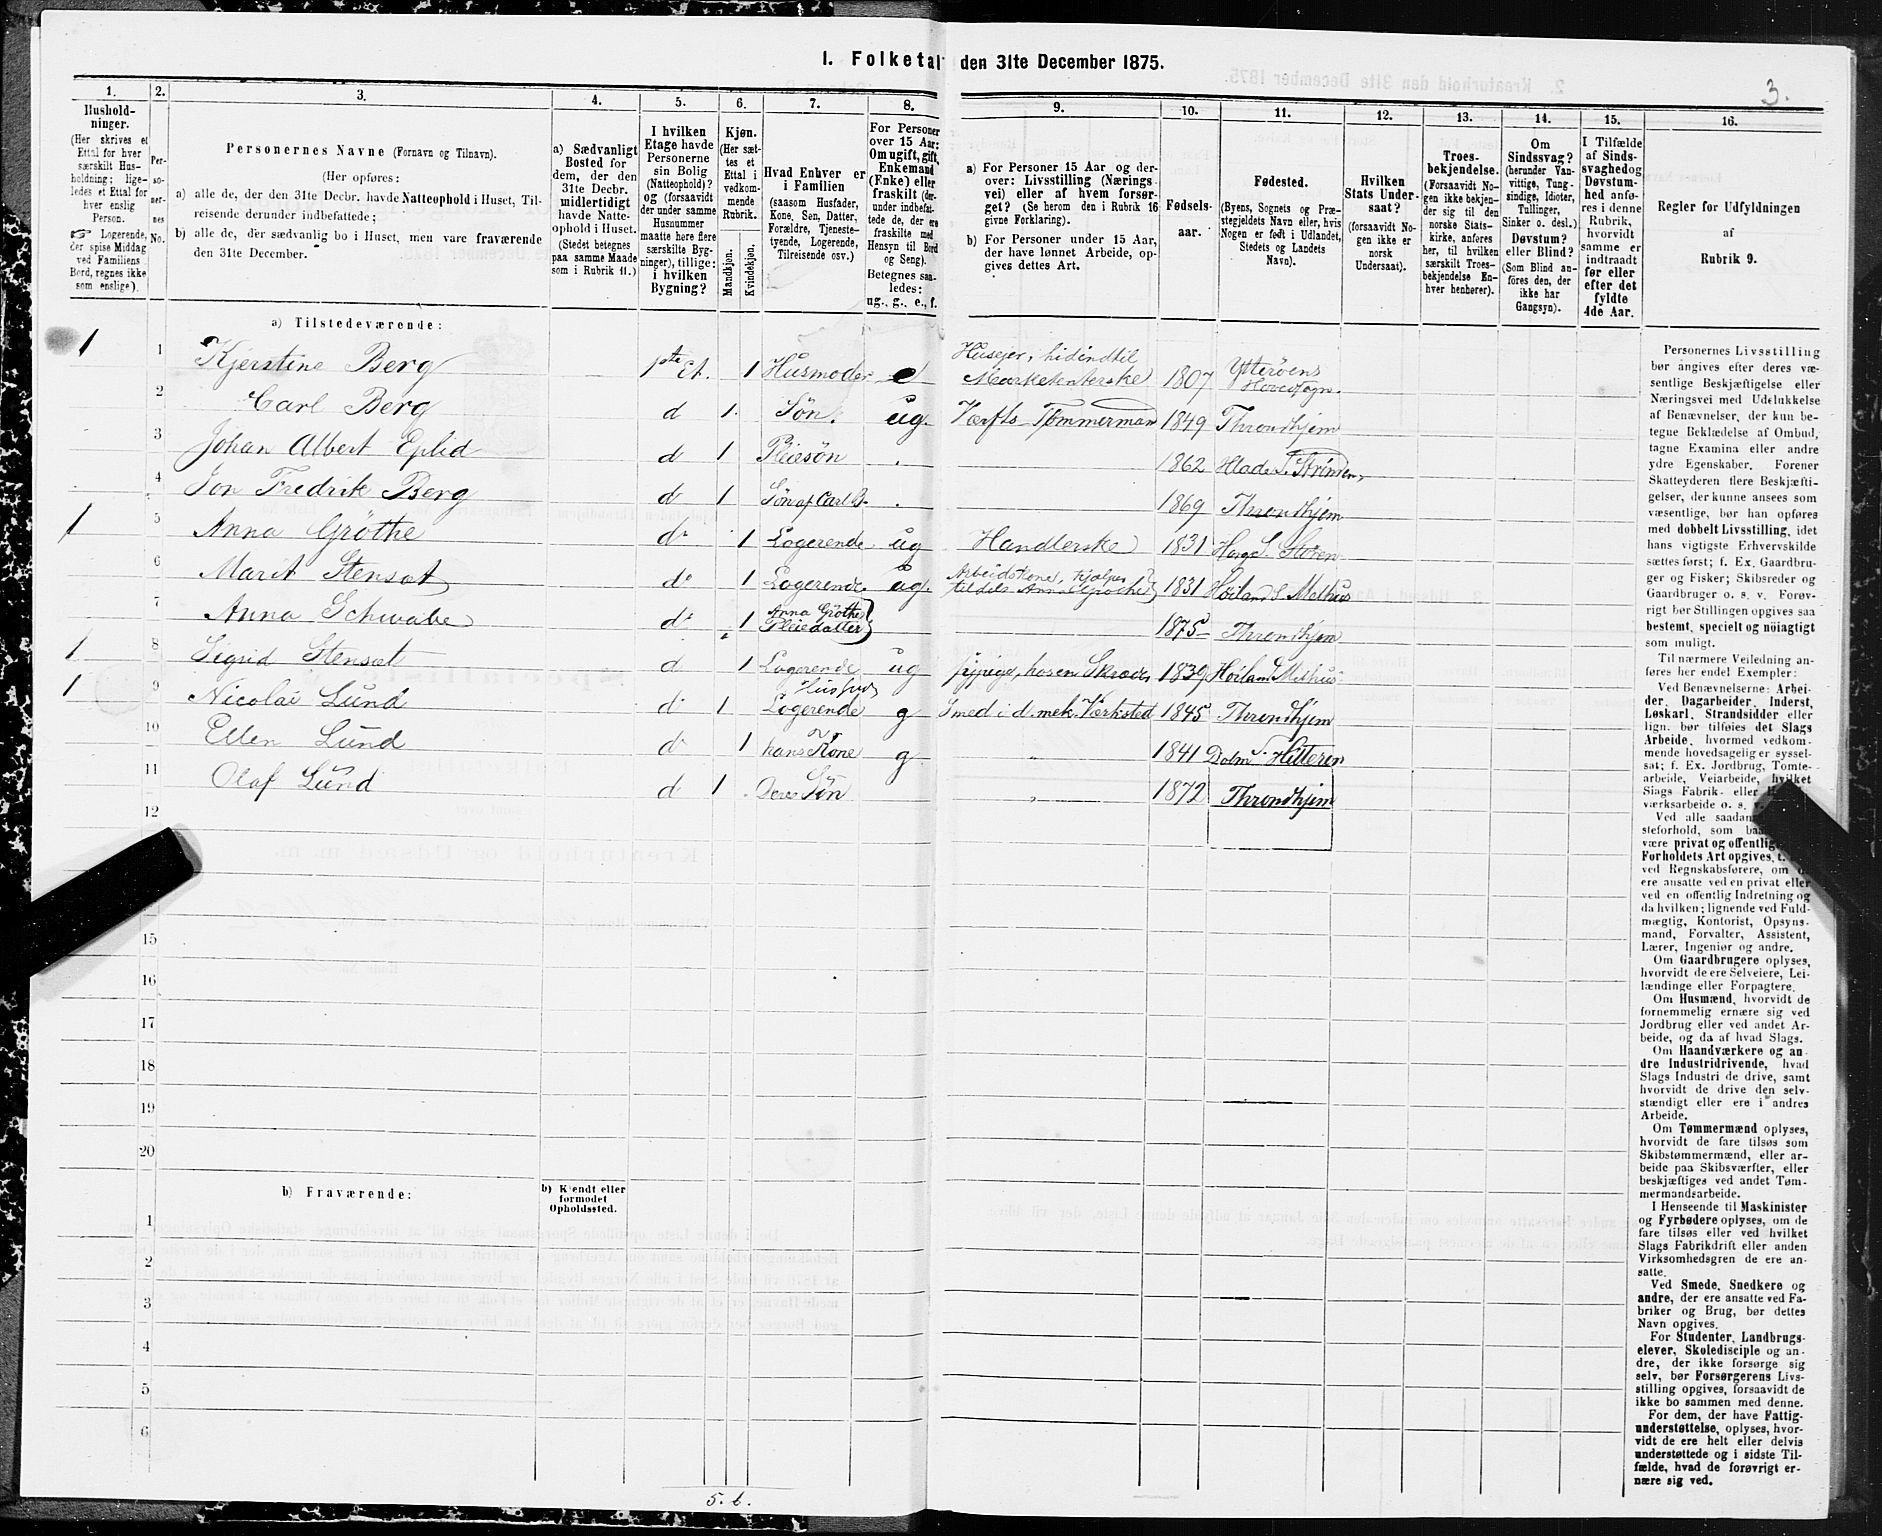 I. Folketal den 31te December 1875.
3.
1.
Hushold-
ninger.
(Her skrives et
Ettal for hver
særskilt Hus-
holdning; lige-
ledes et Ettal for
hver enslig
Person.
☞ Logerende,
der spise Middag
ved Familiens
Bord, regnes ikke
som enslige).
2.
Per-
so-
ner-
nes
No.
3.
Personernes Navne (Fornavn og Tilnavn).
(Her opføres:
a) alle de, der den 31te Decbr. havde Natteophold i Huset, Til-
reisende derunder indbefattede;
b) alle de, der sædvanlig bo i Huset, men vare fraværende
den 31te December.
4.
a) Sædvanligt
Bosted for
dem, der den
31te Decbr.
midlertidigt
havde Natte-
ophold i Huset.
(Stedet betegnes
paa samme Maade
som i Rubrik 11.)
5.
I hvilken
Etage havde
Personerne
sin Bolig
(Natteophold)?
og (forsaavidt
der under samme
Husnummer
maatte høre flere
særskilte Byg-
ninger), tillige:
i hvilken
Bygning?
6.
Kjøn.
(Her sæt-
tes et
Ettal i
vedkom-
mende
Rubrik.
Mandkjøn.
Kvindekjøn.
7.
Hvad Enhver er
i Familien
(saasom Husfader,
Kone, Søn, Datter,
Forældre, Tjeneste-
tyende, Logerende,
Tilreisende osv.)
8.
For Personer
over 15 Aar:
Om ugift, gift,
Enkemand
(Enke) eller
fraskilt (der-
under indbefat-
tede de, der ere
fraskilte med
Hensyn til Bord
og Seng).
Betegnes saa-
ledes:
ug., g., e., f.
9.
a) For Personer 15 Aar og der-
over: Livsstilling (Nærings-
vei) eller af hvem forsør-
get? (Se herom den i Rubrik 16
givne Forklaring).
b) For Personer under 15 Aar,
der have lønnet Arbeide, op-
gives dettes Art.
10.
Fødsels-
aar.
11.
Fødested.
(Byens, Sognets og Præ-
stegjeldets Navn eller, hvis
Nogen er født i Udlandet,
Stedets og Landets
Navn).
12.
Hvilken
Stats Under-
saat?
(forsaavidt No-
gen ikke er
norsk
Undersaat).
13.
Troes-
bekjendelse.
(Forsaavidt No-
gen ikke bekjen-
der sig til den
norske Stats-
kirke, anføres
her, til hvilken
særskilt Troes-
bekjendelse En-
hver henhører).
14.
Om
Sindssvag?
(herunder Van-
vittige, Tung-
sindige, Idioter,
Tullinger,
Sinker o. desl.)
Døvstum?
eller Blind?
(Som Blind an-
føres den, der
ikke har
Gangsyn).
15.
I Tilfælde
af Sinds-
svaghed og
Døvstum-
hed anfø-
res i denne
Rubrik,
hvorvidt
samme er
indtraadt
før eller
efter det
fyldte
4de Aar.
16.
Regler for Udfyldningen
af
Rubrik 9.
a) Tilstedeværende:
1 1 Kjerstine Berg 1ste Et. 1 Husmoder e Huseier, hidindtil Marketenterske 1807 Ytterøens Hovedsogn.
2 Carl Berg d 1. Søn. ug. Værfts Tømmermand 1849 Throndhjem
3 Johan Albert Eplid d 1 Pleiesøn . 1862 Hlade S. Strinden
4 Jon Fredrik Berg d 1 Søn af Carl B. . 1869 Throndhjem
1 5 Anna Grøthe do 1 Logerende ug Handlerske 1831 Horg S. Støren
6 Marit Stensæt do 1 Logerende ug. Arbeidskone, hjælper tildels Anna Grøthe 1831 Høiland S Melhus
7 Anna Schwabe do 1 Anna Grøthes Pleiedatter 1875 Throndhjem
1 8 Sigrid Stensæt d 1 Logerende ug Sypige, hos en Skræder 1839 Høiland S Melhus
1 9 Nicolai Lund d 1 Husfad Logerende g Smed i d. mek. Værksted 1845 Throndhjem
10 Ellen Lund d 1 hans Kone g " 1841 Dolm S. Hitteren
11 Olaf Lund d 1 Deres Søn " 1872 Throndhjem
12
15
16
17
18
19
20
b) Fraværende:
b) Kjendt eller
formodet
Opholdssted.
1
2
3
4
5
6
5. 6.
Personernes Livsstilling
bør angives efter deres væ-
sentlige Beskjæftigelse eller
Næringsvei med Udelukkelse
af Benævnelser, der kun be-
tegne Beklædelse af Ombud,
tagne Examina eller andre
ydre Egenskaber. Forener
Skatteyderen flere Beskjæfti-
gelser, der kunne ansees som
væsentlige, bør han opføres
med dobbelt Livsstilling, idet
hans vigtigste Erhvervskilde
sættes først; f. Ex. Gaardbru-
ger og Fisker; Skibsreder og
Gaardbruger o. s. v. Forøv-
rigt bør Stillingen opgives saa
bestemt, specielt og nöiagtigt
som muligt.
Til nærmere Veiledning an-
føres her endel Exempler:
Ved Benævnelserne: Arbei-
der, Dagarbeider, Inderst,
Løskarl, Strandsidder eller
lign. bør tilføies det Slags
Arbeide, hvormed vedkom-
mende hovedsagelig er syssel-
sat; f. Ex. Jordbrug, Tomte-
arbeide, Veiarbeide, hvilket
Slags Fabrik- eller
værksarbeide o. s. v.
Ved alle saadan
steforhold, som
være privat og offentlig
Forholdets Art opgives, t.
ved Regnskabsførere, om
ere ansatte ved en privat eller
ved en offentlig Indretning og
da hvilken; lignende ved Fuld-
mægtig, Kontorist, Opsyns-
mand, Forvalter, Assistent,
Lærer, Ingeniør og andre.
Om Gaardbrugere oplyses,
hvorvidt de ere Selveiere, Lei-
lændinge eller Forpagtere.
Om Husmænd, hvorvidt de
fornemmelig ernære sig ved
Jordbrug eller ved andet Ar-
beide, og da af hvad Slags.
Om Haandværkere og an
dre Industridrivende, hvad
Slags Industri de drive, samt
hvorvidt de drive den selv-
stændigt eller ere i andres
Arbeide.
Om Tømmermænd oplyses,
hvorvidt de fare tilsøs som
Skibstømmermænd, eller ar-
beide paa Skibsværfter, eller
beskjæftiges ved andet Tøm-
mermandsarbeide.
I Henseende til Maskinister
og Fyrbødere oplyses, om de
fare tilsøs eller ved hvilket
Slags Fabrikdrift eller anden
Virksomhedsgren de ere an-
satte.
Ved Smede, Snedkere og
andre, der ere ansatte ved Fa-
briker og Brug, bør dettes
Navn opgives.
For Studenter, Landbrugs-
elever, Skoledisciple og an-
dre, der ikke forsørge sig
selv, bør Forsørgerens Livs-
stilling opgives, forsaavidt de
ikke bo sammen med denne.
For dem, der have Fattig-
understøttelse, oplyses, hvor-
vidt de ere helt eller delvis
understøttede og i sidste Til-
fælde, hvad de forøvrigt er-
nære sig ved.